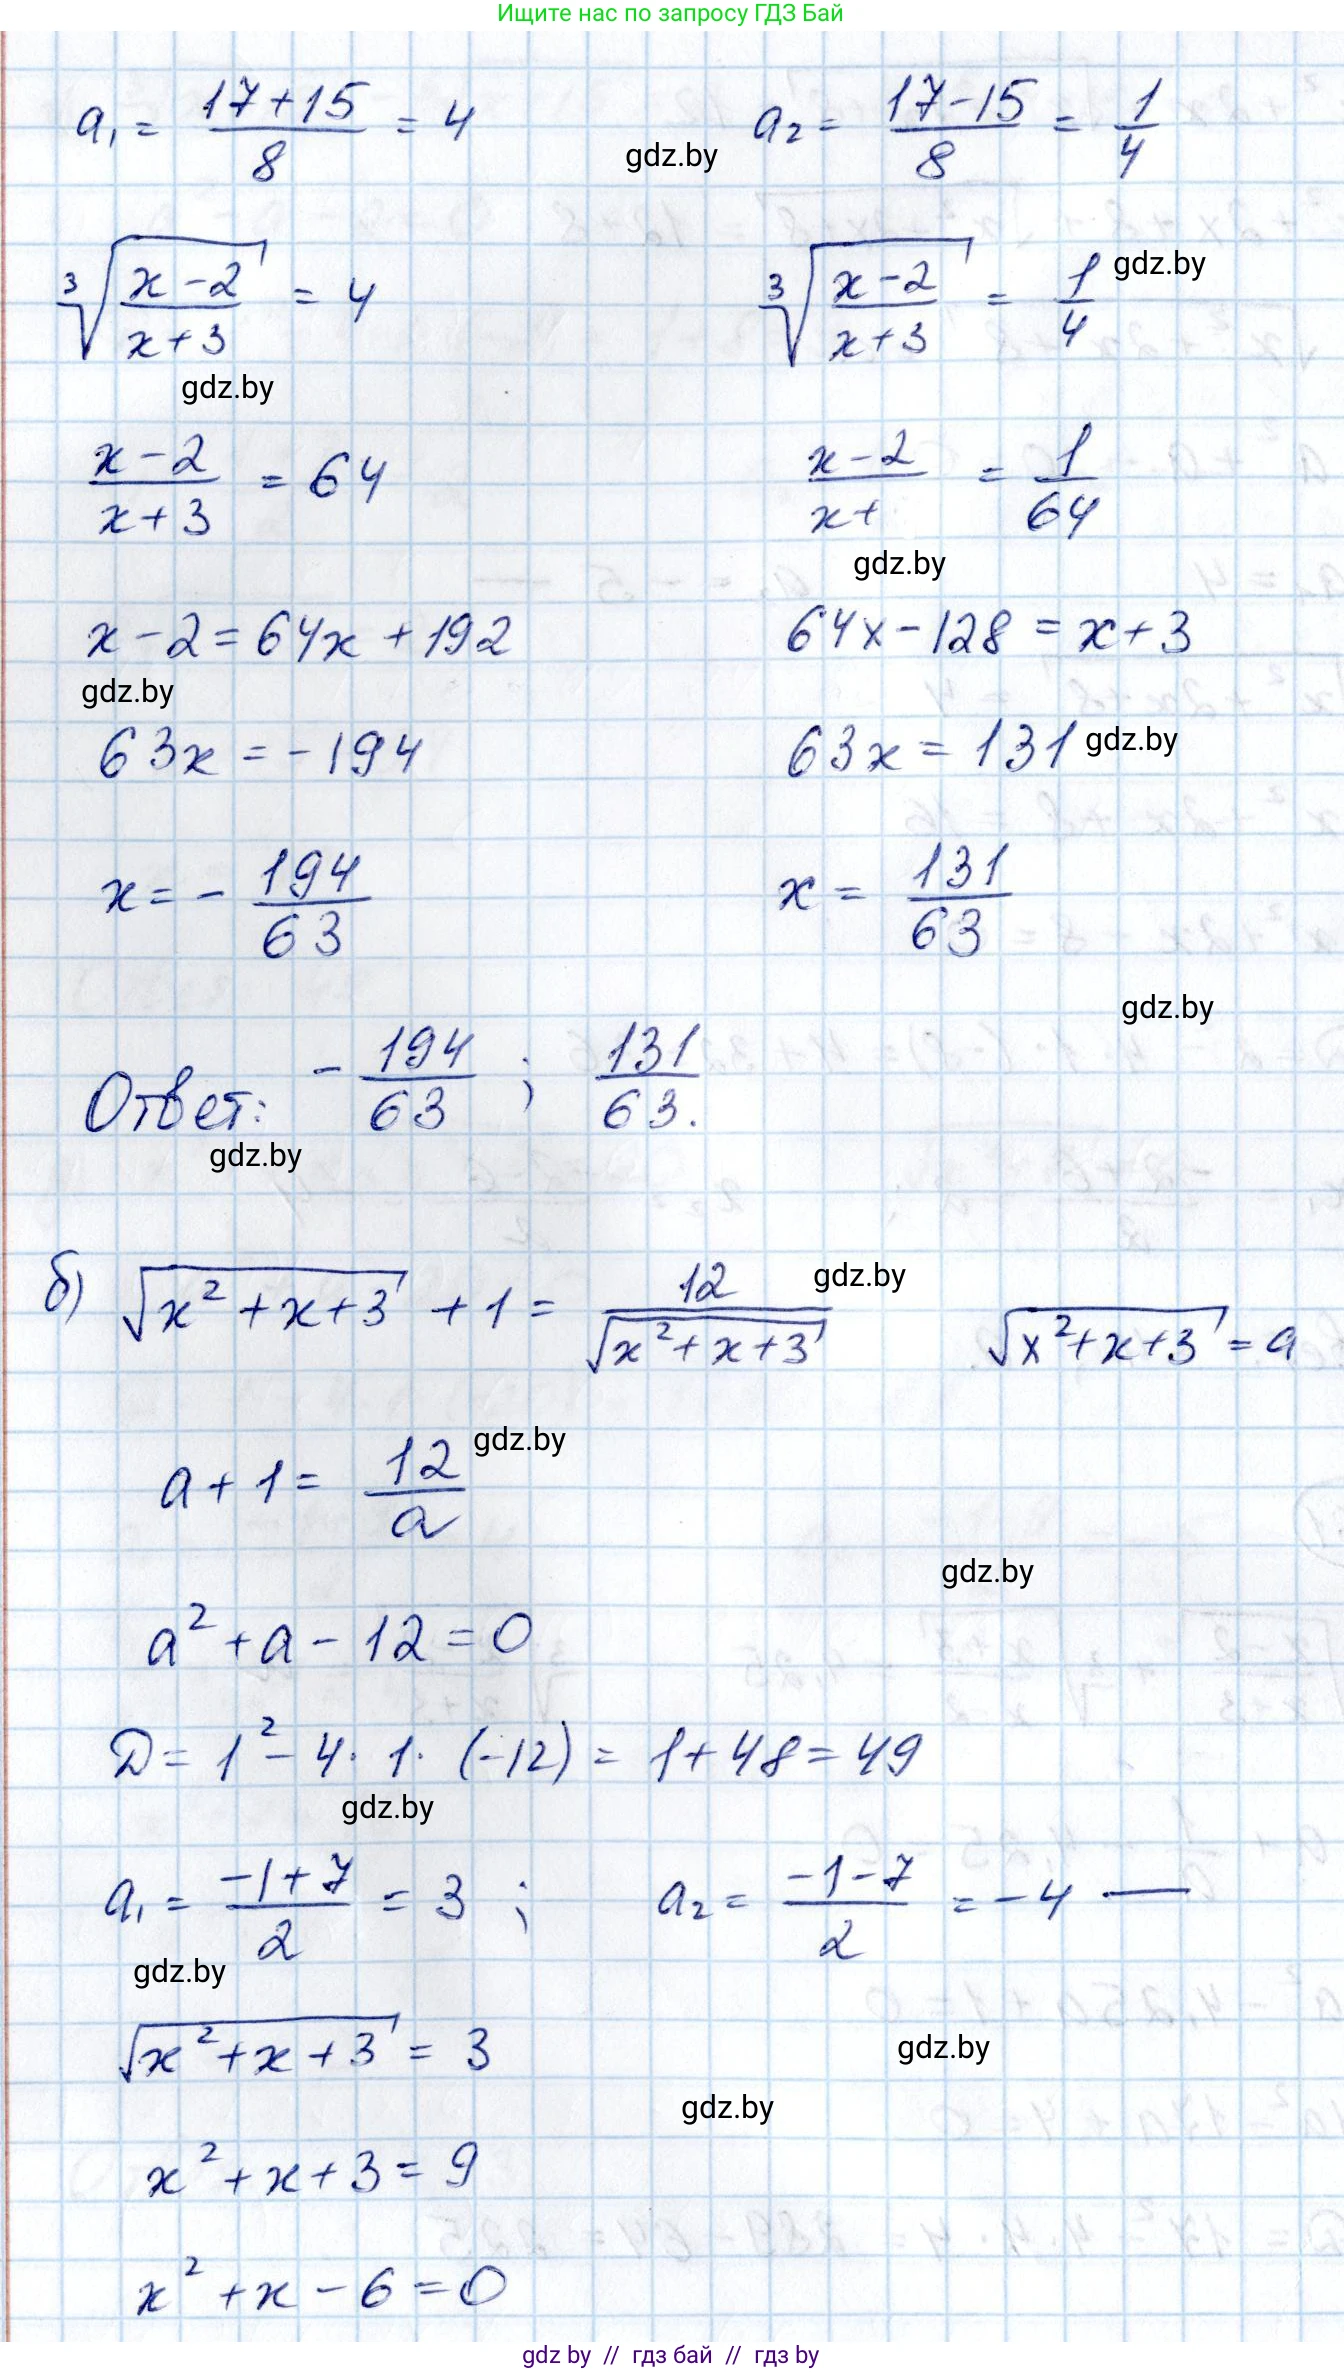 Ищите нас по запросу ГДЗ Бай
a₁ = (17+15)/8 = 4    gdz.by    a₂ = (17-15)/8 = 1/4
∛((x-2)/(x+3)) = 4    ∛((x-2)/(x+3)) = 1/4 gdz.by
gdz.by
(x-2)/(x+3) = 64    (x-2)/(x+ = 1/64
gdz.by
x-2=64x+192    64x-128=x+3
gdz.by
63x=-194    63x=131 gdz.by
x=-194/63    x=131/63
gdz.by
Ответ: -194/63 ; 131/63.
gdz.by
б) √(x²+x+3) + 1 = 12/√(x²+x+3) gdz.by    √(x²+x+3) = a
a+1 = 12/a gdz.by
gdz.by
a²+a-12=0
D = 1²-4·1·(-12) = 1+48=49
gdz.by
a₁ = (-1+7)/2 = 3 ;    a₂ = (-1-7)/2 = -4 —
gdz.by
√(x²+x+3) = 3    gdz.by
gdz.by
x²+x+3=9
x²+x-6=0
gdz by // гдз бай // гдз by